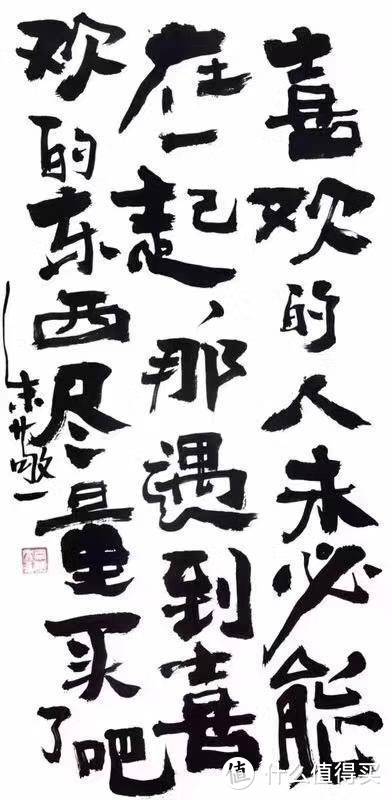 喜欢的人未必能
在一起、那遇到喜
欢的东西尽量买了吧
朱敬一
值 什么值得买